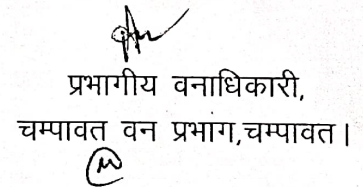 प्रभागीय वनाधिकारी,
चम्पावत वन प्रभाग,चम्पावत।